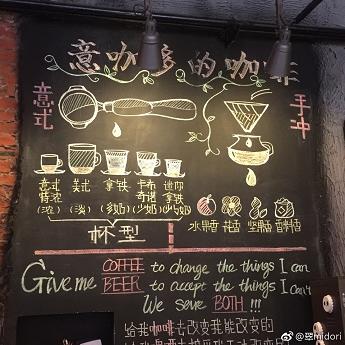 意咖多的咖啡
意式
手冲
意式 美式 拿铁 卡布 迷你
特浓 奇诺 拿铁
(浓) (淡) (多奶) (少奶) (少奶)
水果香 花香 坚果香
杯型
Give me COFFEE to change the things I can
BEER to accept the things I can't
We serve BOTH !!!
给我咖啡去改变我能改变的
@翌midori